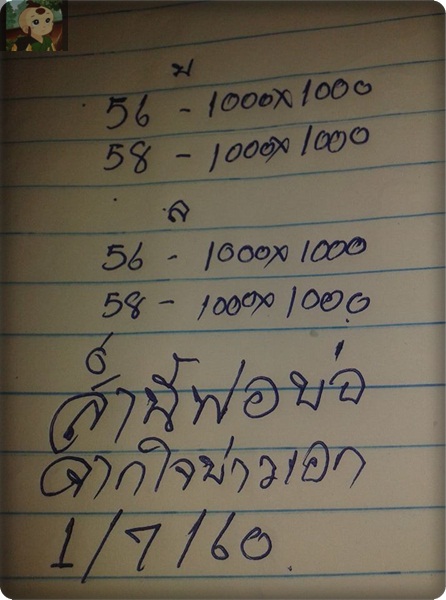 บ
56 - 1000x1000
58 - 1000x1000
ล
56 - 1000x1000
58 - 1000x1000
ล้ำนี้พอบ่อ
จากใจบ่าวเอก
1/7/60